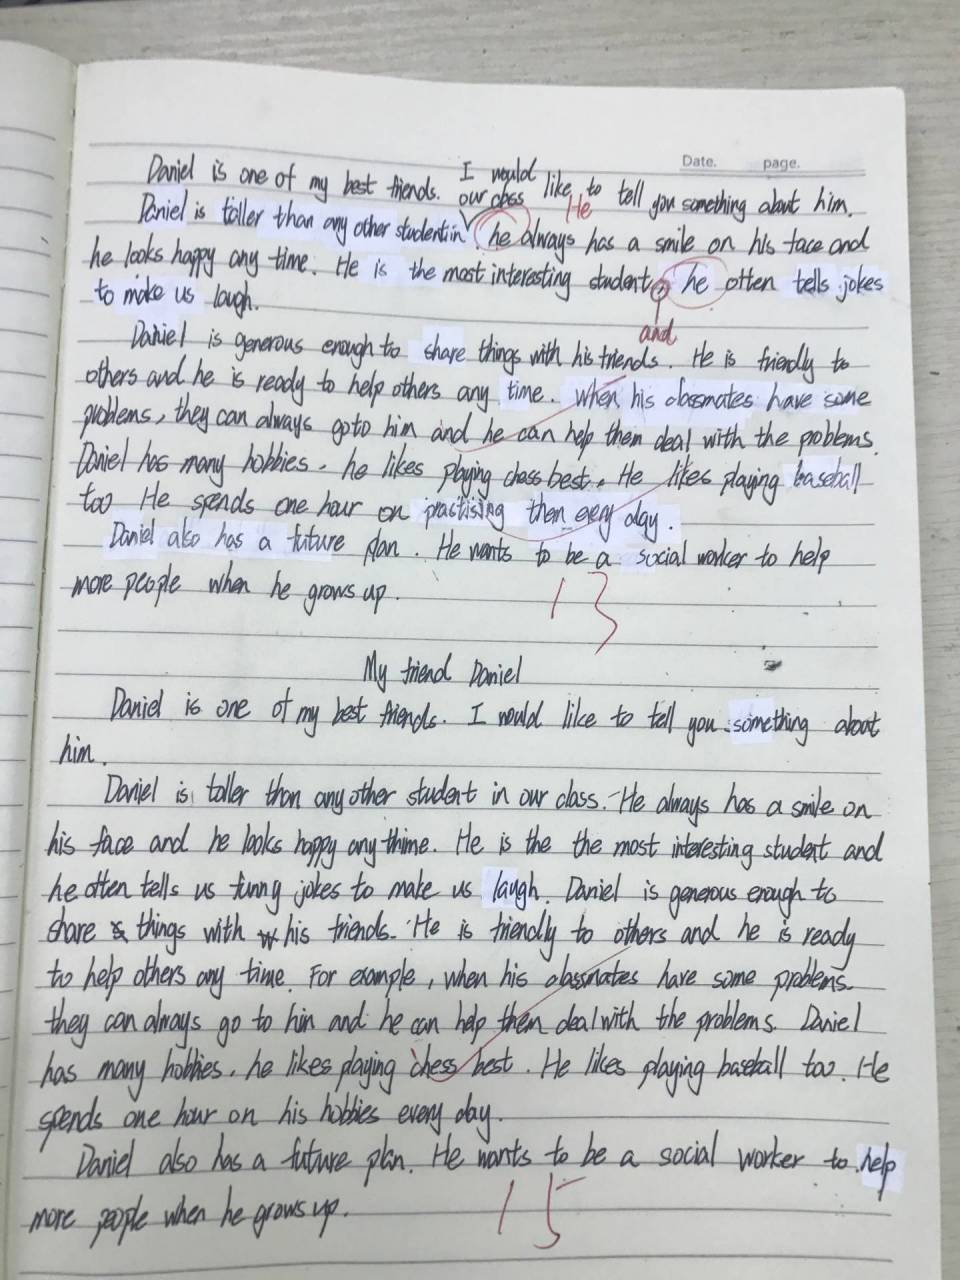 Date. page.
Daniel is one of my best friends. I would like to tell you something about him.
our class He
Daniel is taller than any other student in he always has a smile on his face and
he looks happy any time. He is the most interesting student, he often tells jokes
to make us laugh.
and
Daniel is generous enough to share things with his friends. He is friendly to
others and he is ready to help others any time. When his classmates have some
problems, they can always go to him and he can help them deal with the problems.
Daniel has many hobbies. he likes playing chess best. He likes playing baseball
too He spends one hour on practising them every day.
Daniel also has a future plan. He wants to be a social worker to help
more people when he grows up. 13
My friend Daniel
Daniel is one of my best friends. I would like to tell you something about
him.
Daniel is taller than any other student in our class. He always has a smile on
his face and he looks happy any thime. He is the the most interesting student and
he often tells us funny jokes to make us laugh. Daniel is generous enough to
share things with his friends. He is friendly to others and he is ready
to help others any time. For example, when his classmates have some problems.
they can always go to him and he can help them deal with the problems. Daniel
has many hobbies, he likes playing chess best. He likes playing baseball too. He
spends one hour on his hobbies every day.
Daniel also has a future plan. He wants to be a social worker to help
more people when he grows up. 15